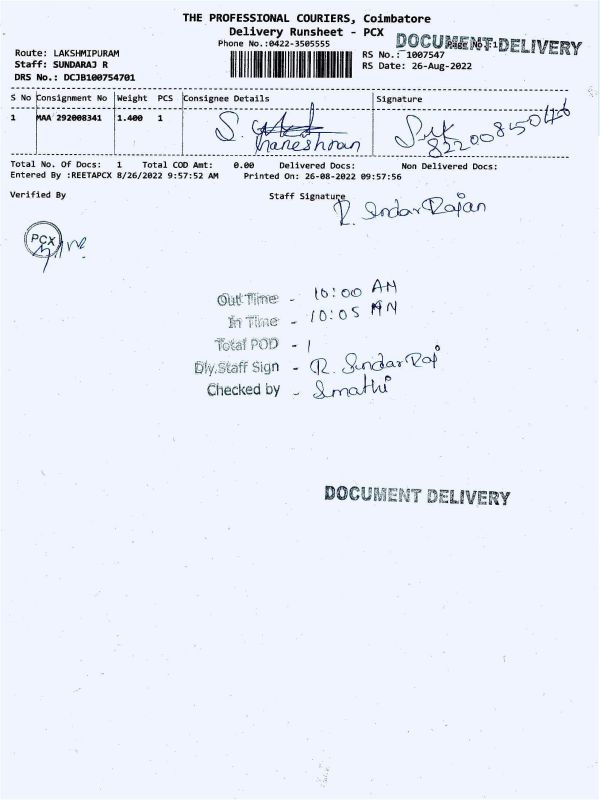 THE PROFESSIONAL COURIERS, Coimbatore
Delivery Runsheet - PCX
Phone No.:0422-3505555
DOCUMENT DELIVERY
PAGE No.:1
Route: LAKSHMIPURAM
RS No.: 1007547
Staff: SUNDARAJ R
RS Date: 26-Aug-2022
DRS No.: DCJB100754701
S No Consignment No Weight PCS Consignee Details Signature
1 MAA 292008341 1.400 1 S.
Total No. Of Docs: 1 Total COD Amt: 0.00 Delivered Docs: Non Delivered Docs:
Entered By :REETAPCX 8/26/2022 9:57:52 AM Printed On: 26-08-2022 09:57:56
Verified By Staff Signature
R. Sundar Rajan
PCX
Out Time - 10:00 AM
In Time - 10:05 AM
Total POD - 1
Dly.Staff Sign - R. Sundar Raj
Checked by - Sumathi
DOCUMENT DELIVERY